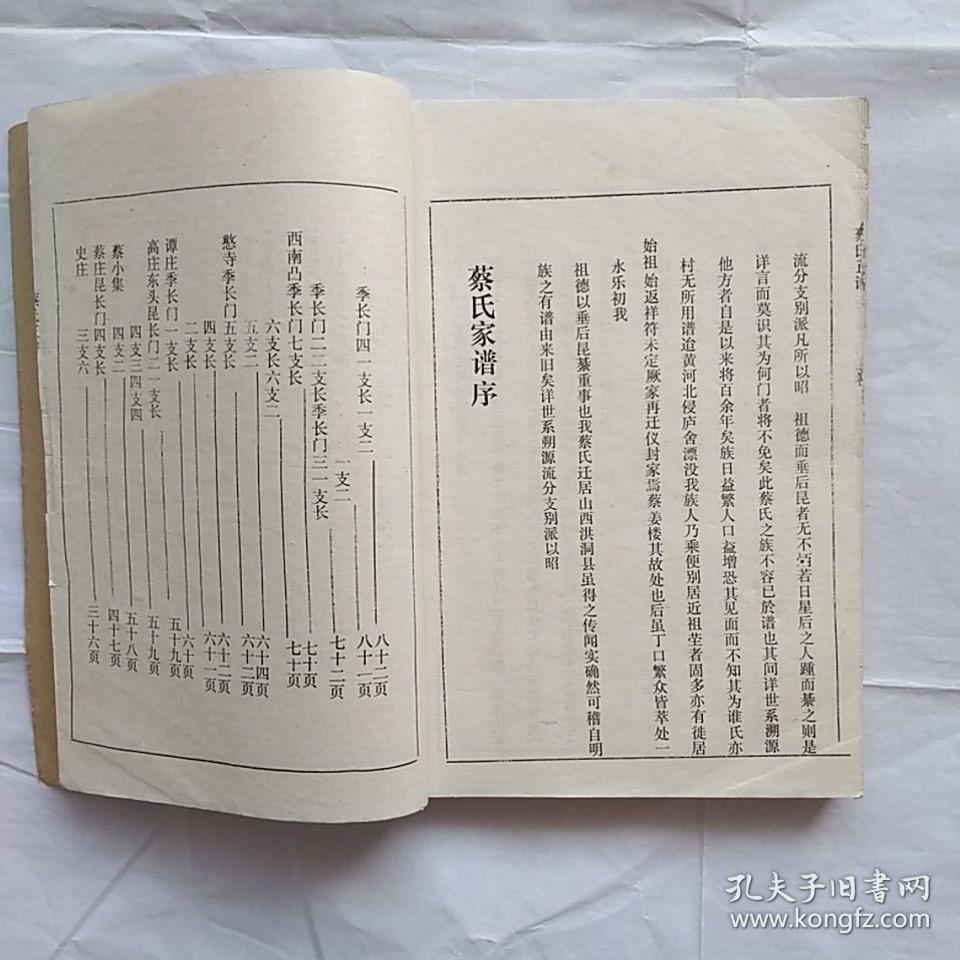 史庄 三支六 三十六页
蔡庄昆长门 四支长 四十七页
蔡小集 四支二 五十八页
四支三四支四 五十九页
高庄东头昆长门二一支长 五十九页
谭庄季长门一支长 六十页
二支长 六十一页
四支长
憨寺季长门五支长 六十二页
五支二
六支长六支二 六十四页
西南凸季长门七支长 七十页
季长门二二支长季长门三一支长 七十页
一支二 七十二页
季长门四一支长一支二 八十一页
八十二页
蔡氏家谱序
族之有谱由来旧矣详世系朔源流分支别派以昭
祖德以垂后昆纂重事也我蔡氏迁居山西洪洞县虽得之传闻实确然可稽自明
永乐初我
始祖 始返祥符未定厥家再迁仪封家焉蔡姜楼其故处也后虽丁口繁众皆萃处一
村无所用谱迨黄河北侵庐舍漂没我族人乃乘便别居近祖茔者固多亦有徙居
他方者自是以来将百余年矣族日益繁人口益增恐其见面而不知其为谁氏亦
详言而莫识其为何门者将不免矣此蔡氏之族不容已於谱也其间详世系溯源
流分支别派凡所以昭 祖德而垂后昆者无不炳若日星后之人踵而纂之则是
孔夫子旧书网
www.kongfz.com